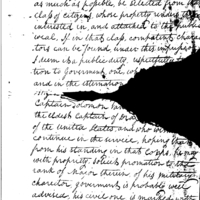 as much as possible, be selected from the
class of citizens, whose property under the
interested in, and attached to the public
weal. If in that class, competent charac
tors can be found under this impression
I deem it a public duty, respectfully to
tion to Government out, of
and in the estimation
Captain Solomon Van
the eldest Captain of Dra
of the united States, and who wi
continue in the service, hoping tha
from his standing in that Corps, he may
with propriety, solicit promotion to the
rank of Major therein of his military
charector government is probably well
advised, his civil one is marked with